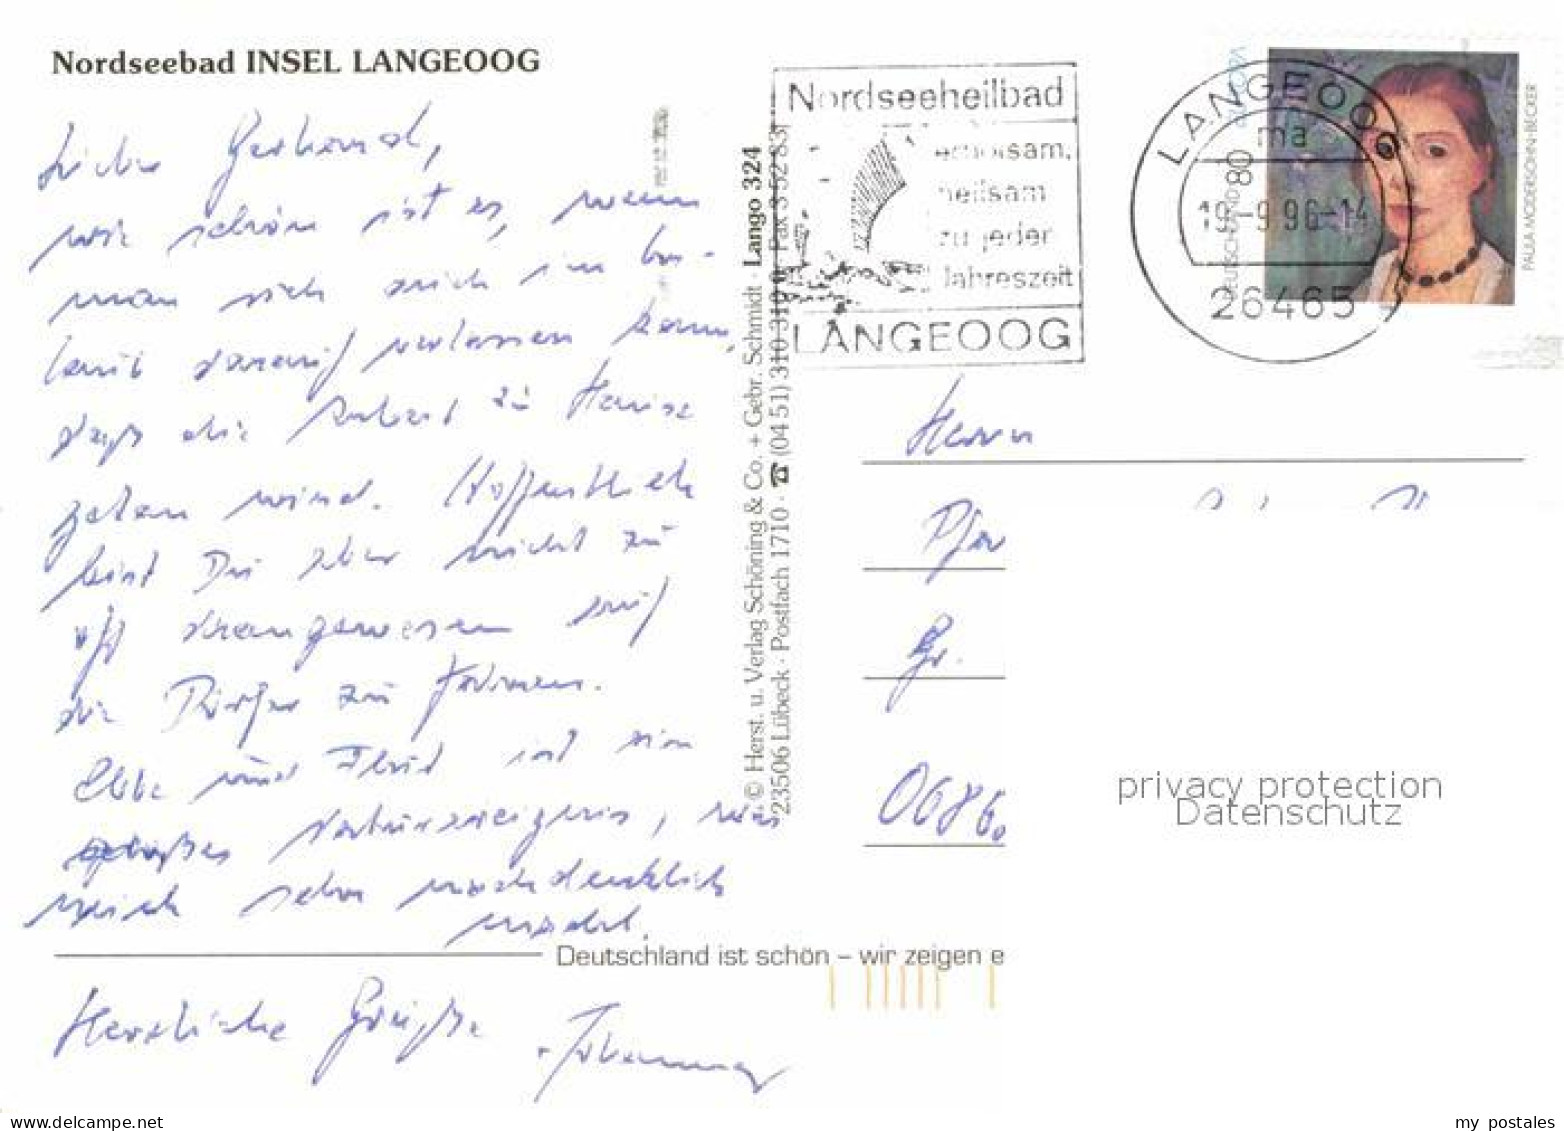 Nordseebad INSEL LANGEOOG
Lieber Gerhard,
wie schön ist es, wenn
man sich auch im Ur-
laub darauf verlassen kann,
daß die Arbeit zu Hause
getan wird. Hoffentlich
bist Du aber nicht zu
oft drangewesen auf
die Dörfer zu fahren.
Ebbe und Flut ist ein
großes Naturereignis, was
mich sehr nachdenklich
macht.
Herzliche Grüße
Johannes
© Herst. u. Verlag Schöning & Co. + Gebr. Schmidt · Lango 324
23506 Lübeck · Postfach 1710 · ☎ (04 51) 310 310 · Fax 3 52 83
Nordseeheilbad
erholsam,
heilsam
zu jeder
Jahreszeit
LANGEOOG
LANGEOOG
ma
-9.96-14
26465
80
DEUTSCHLAND
PAULA MODERSOHN-BECKER
Herrn
Pfar
Gr.
0686
Deutschland ist schön – wir zeigen e
privacy protection
Datenschutz
my postales